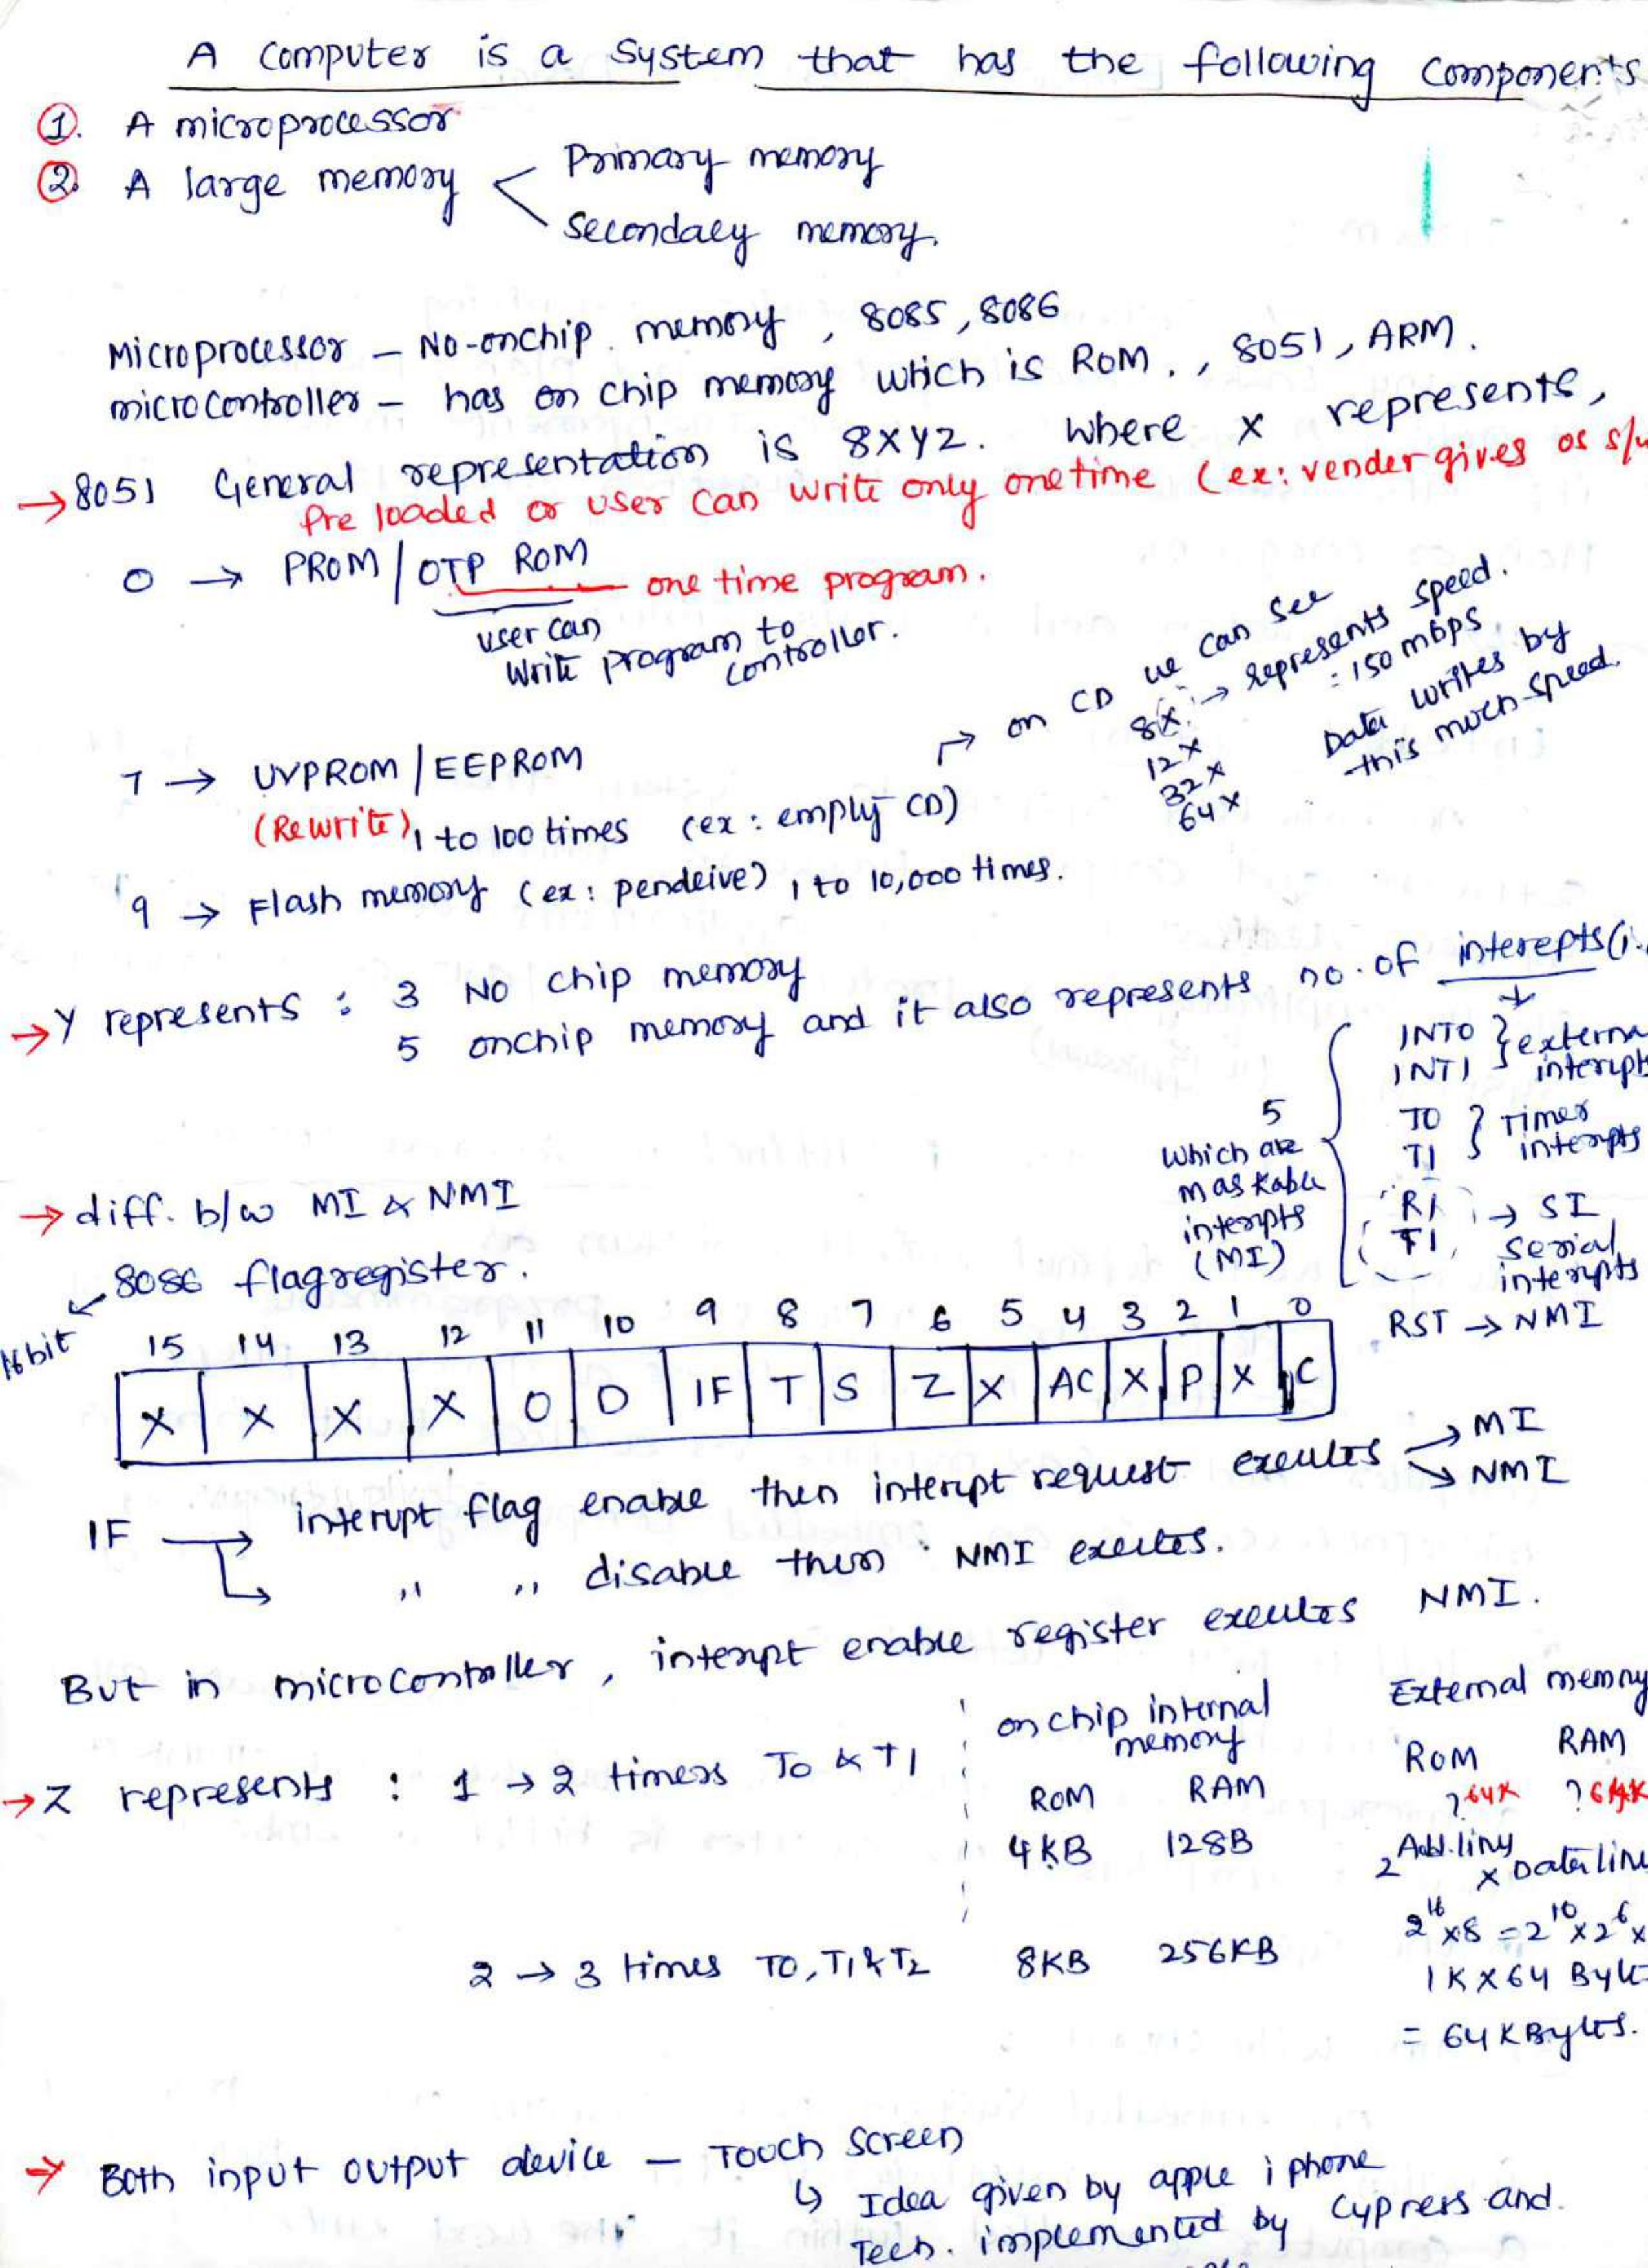 A Computer is a System that has the following Components
①. A microprocessor
②. A large memory < Primary memory
Secondaey memory.
Microprocessor – No-onchip memory, 8085, 8086
microcontroller – has on chip memory which is ROM., 8051, ARM.
→ 8051 General representation is 8XYZ. Where X represents,
Pre loaded or user can write only onetime (ex: vender gives os s/w
0 → PROM / OTP ROM — one time program.
user can
write program to
controller.
on CD we can see
8X → represents speed.
: 150 mbps
12X
32X
64X
Data writes by
this much speed.
7 → UVPROM / EEPROM
(Rewrite), 1 to 100 times (ex: empty CD)
9 → Flash memory (ex: pendeive) 1 to 10,000 times.
→ Y represents : 3 No chip memory
5 onchip memory and it also represents no. of interepts (i.
INT0 } externa
INT1 interupt
T0 } Timer
T1 interupts
RI → SI
TI serial
interupts
5
Which are
maskable
interupts
(MI)
RST → NMI
→ diff. b/w MI & NMI
8086 flagregister.
16bit
15 14 13 12 11 10 9 8 7 6 5 4 3 2 1 0
X X X X O D IF T S Z X AC X P X C
IF → interupt flag enable then interupt request exeutes → MI
→ NMI
" " disable then NMI exeutes.
But in microcontroller, interupt enable register exeutes NMI.
→ Z represents : 1 → 2 timers T0 & T1
on chip internal
memory
ROM RAM
4KB 128B
External memory
ROM RAM
? 64K ? 64K
2 Add.liny x Data line
2^16 x8 = 2^10 x 2^6 x
1K X 64 Byte
= 64 KBytes.
2 → 3 times T0, T1 & T2 8KB 256KB
→ Both input output device – Touch Screen
↳ Idea given by apple iphone
Tech. implemented by Cypress and